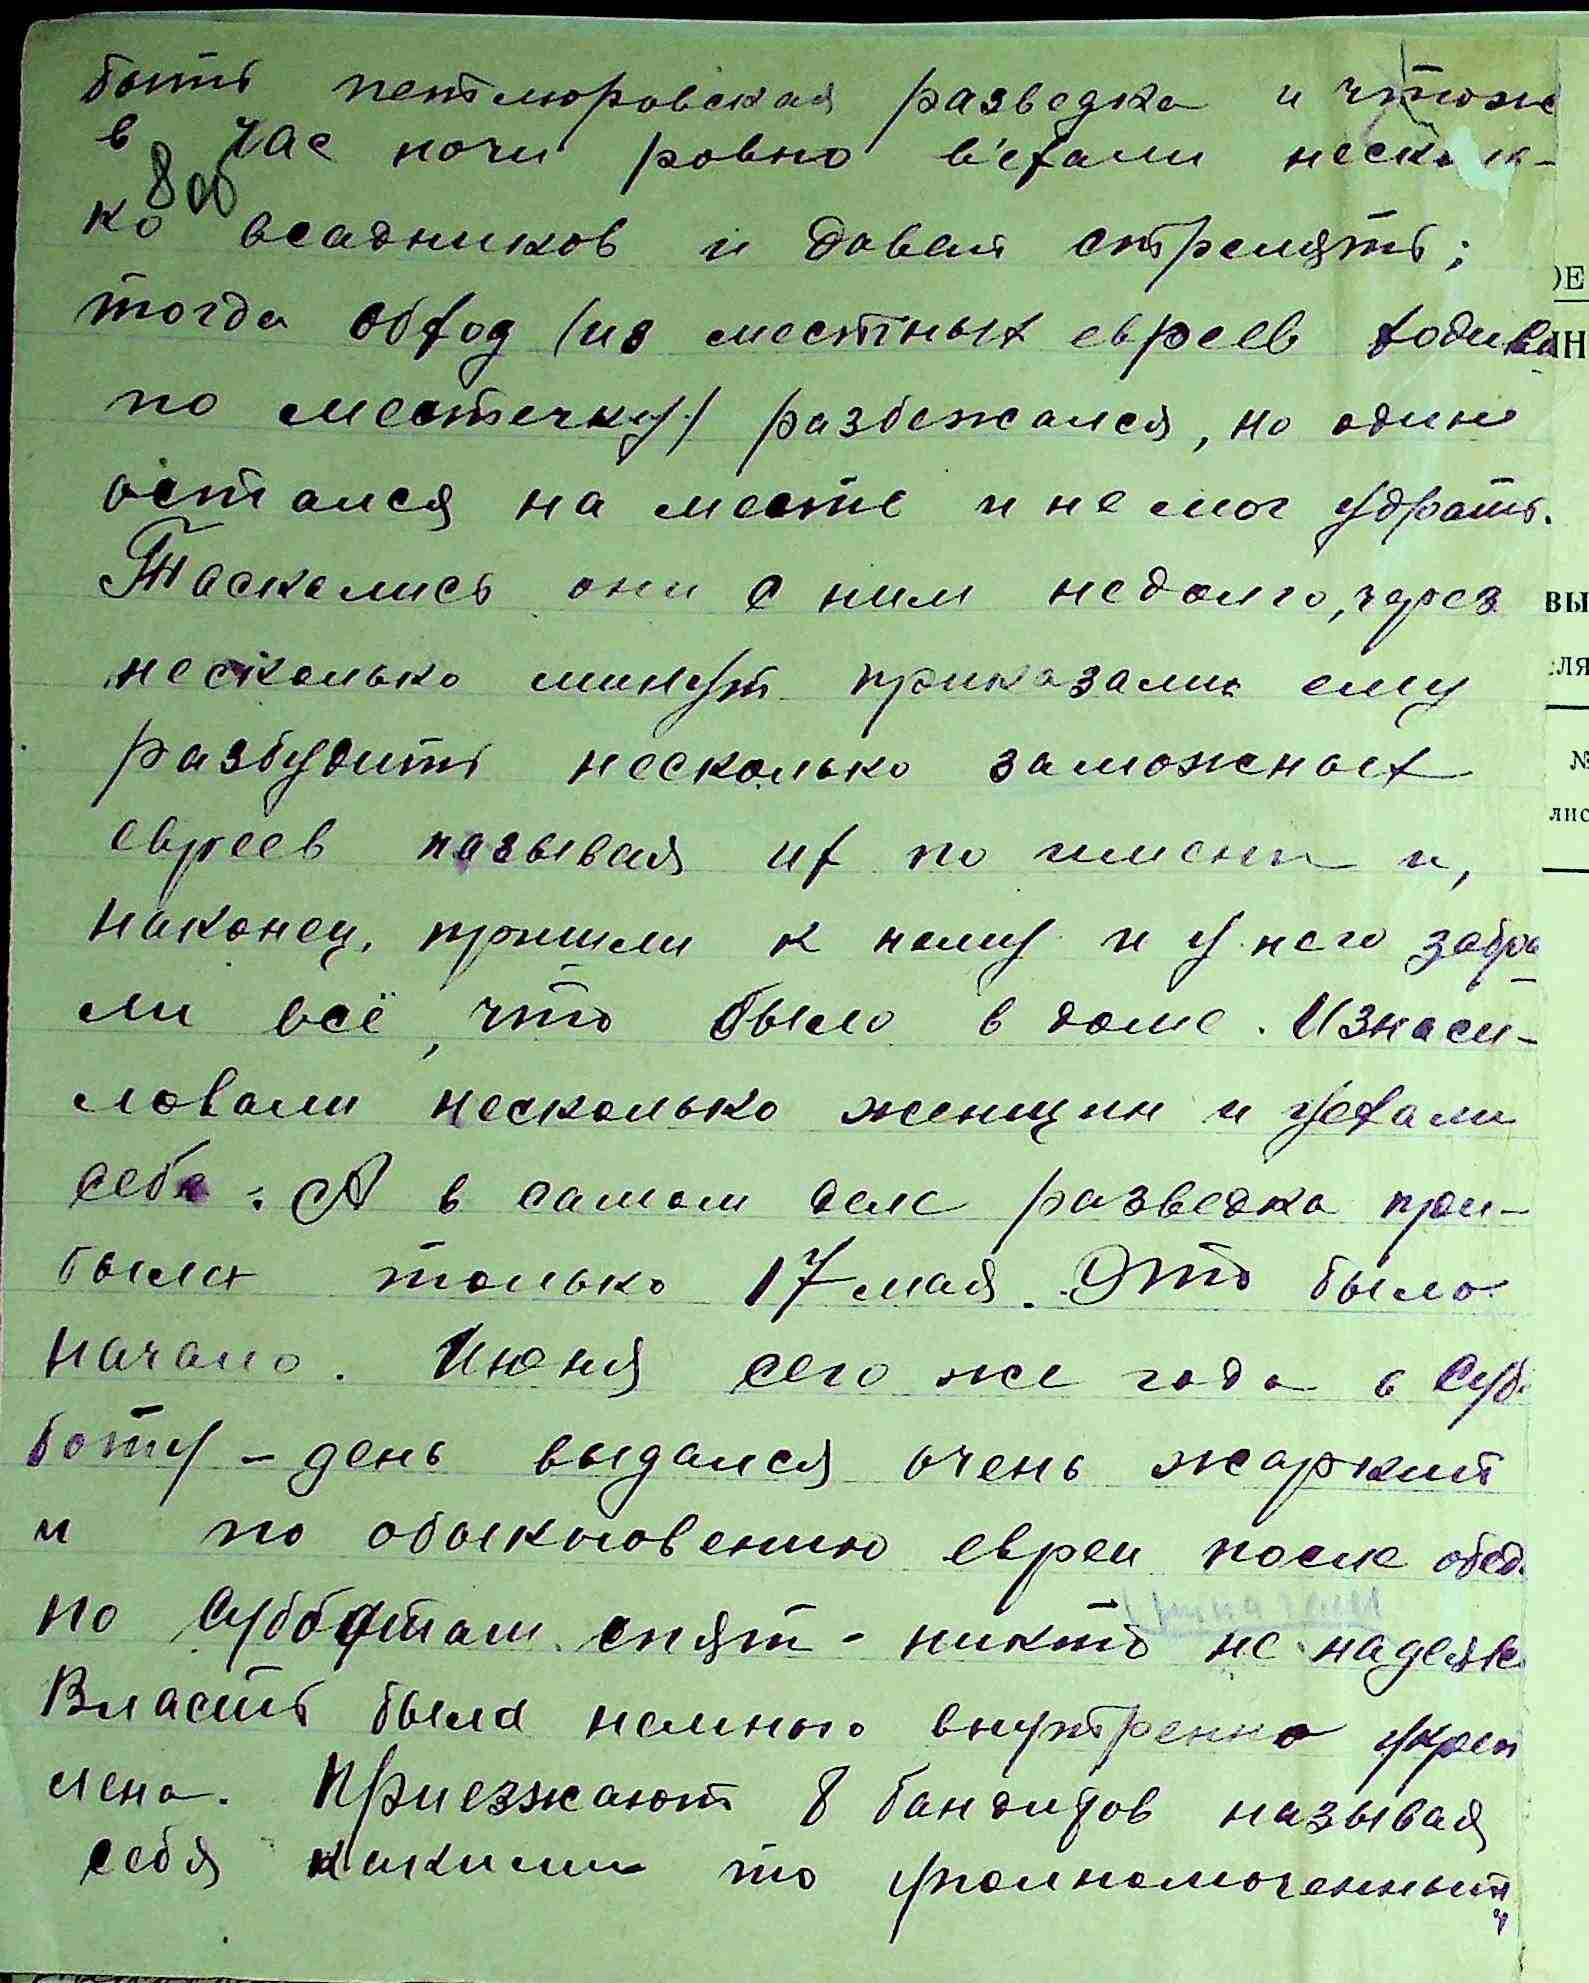 быть петлюровская разведка и чтоже
в час ночи ровно в'ехали несколь-
800
ко всадников и давай стрелять;
тогда обход (из местных евреев ходивш
по местечку) разбежался, но один
остался на месте и не мог удрать.
Таскались они с ним недолго, через
несколько минут приказали ему
разбудить несколько заможных
евреев называя их по имени и,
наконец, пришли к нему и у него забра
ли всё, что было в доме. Изнаси-
ловали несколько женщин и уехали
себе. А в самом деле разведка при-
была только 17 мая. Это было
начало. Июня сего же года в суб-
боту – день выдался очень жаркий
и по обыкновению евреи после обед.
по субботам спят – никто не надеялс
Власть была немного внутренно укреп
лена. Приезжают 8 бандитов называя
себя какими то уполномоченными
ОЕ
ВЫ
ЛЯ
№
лис